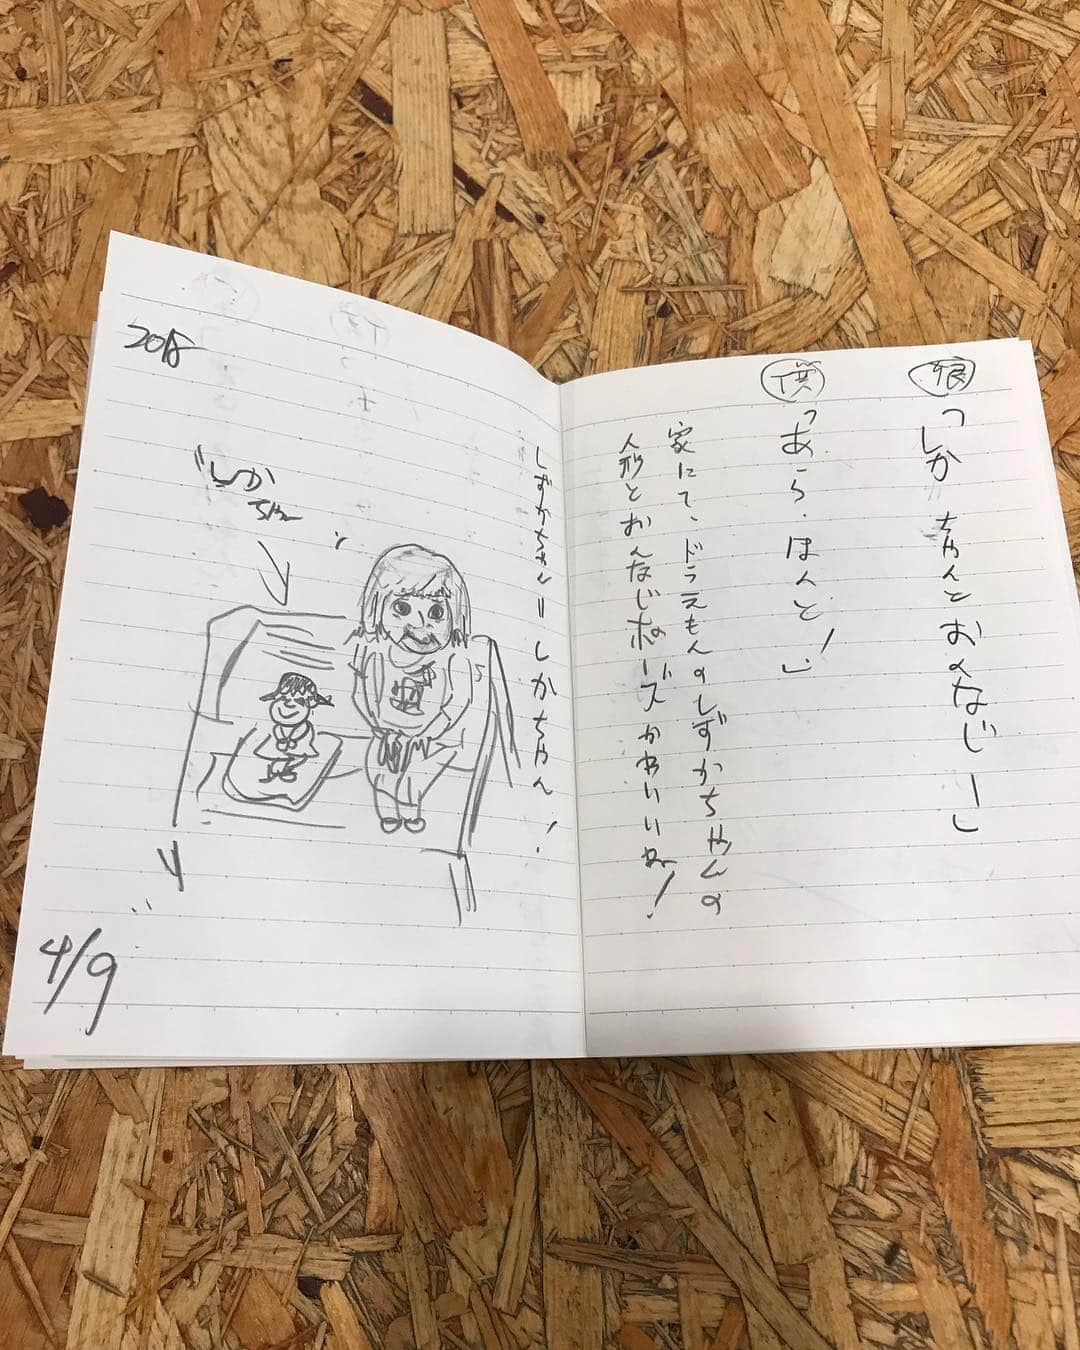 娘「しかちゃんとおんなじー」
僕「あら、ほんと!」
家にて、ドラえもんのしずかちゃんの
人形とおんなじポーズかわいいね!
しずかちゃん=しかちゃん!
2018
"しか
ちゃん"
4/9